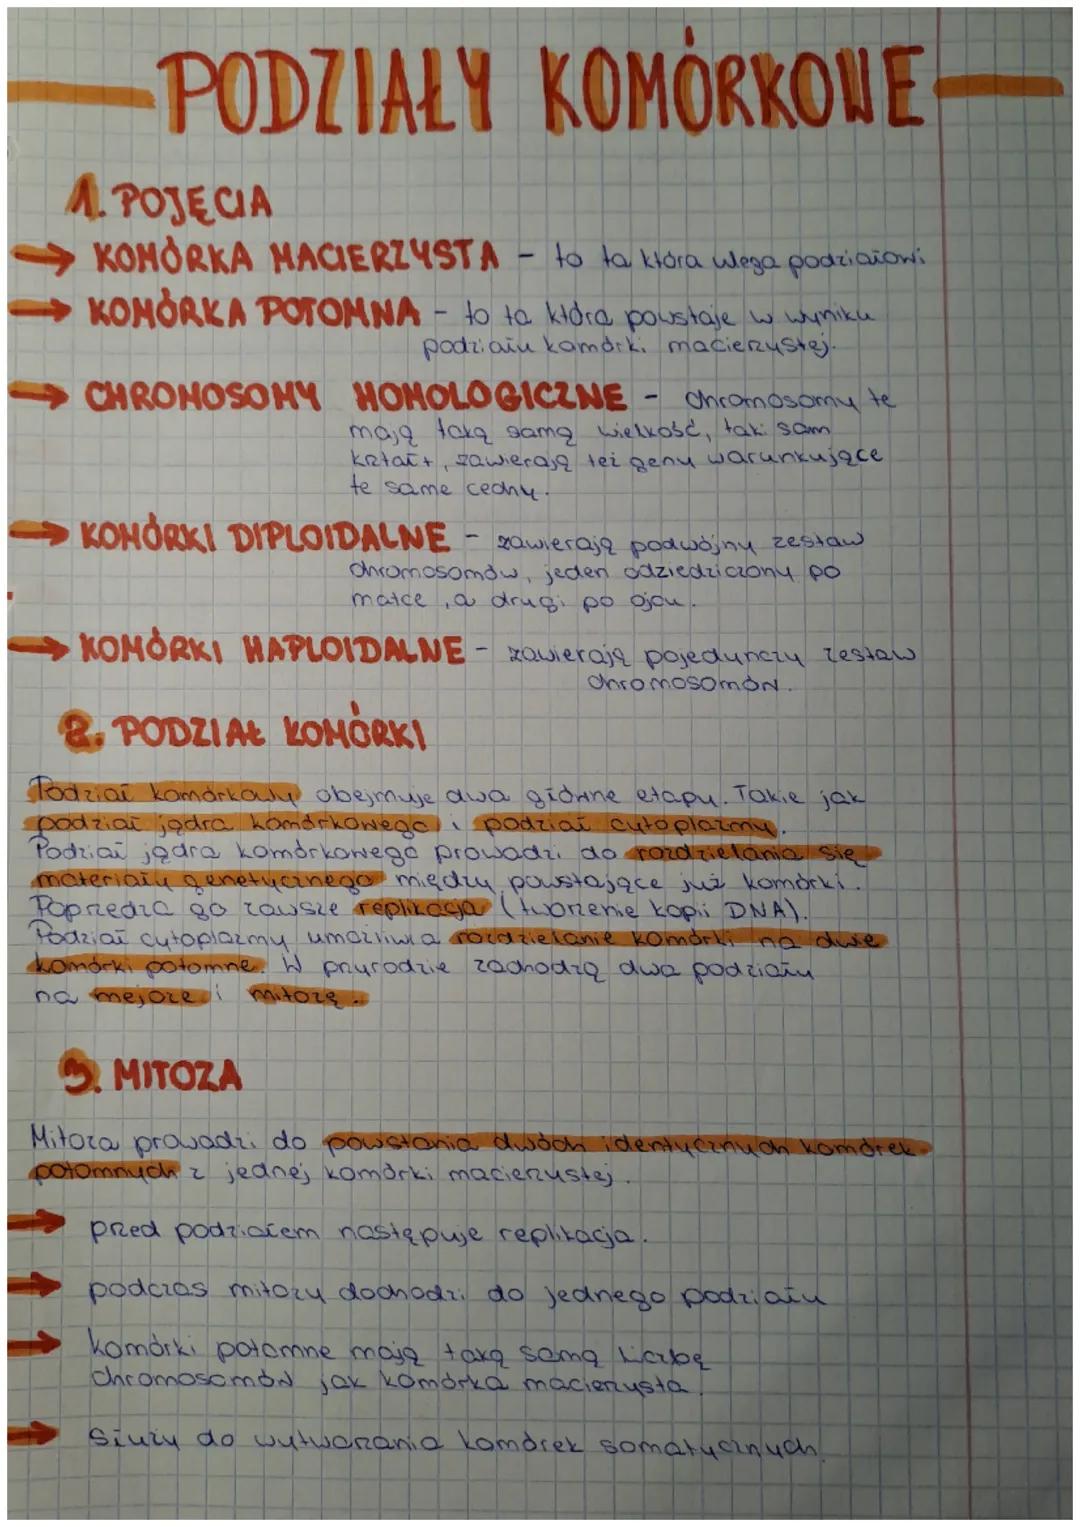 PODZIAŁY KOMÓRKOWE
1. POJĘCIA
→ KOMÓRKA MACIERZYSTA - to ta która ulega podziałowi
→ KOMÓRKA POTOMNA - to ta która powstaje w wyniku
podziału komórki macierzystej.
→ CHROMOSOMY HOMOLOGICZNE - chromosomy te
mają taką samą wielkość, taki sam
kształt, zawierają też geny warunkujące
te same cechy.
→ KOMÓRKI DIPLOIDALNE - zawierają podwójny zestaw
chromosomów, jeden odziedziczony po
matce, a drugi po ojcu.
→ KOMÓRKI HAPLOIDALNE - zawierają pojedynczy zestaw
chromosomów.
2. PODZIAŁ KOMÓRKI
Podział komórkowy obejmuje dwa główne etapy. Takie jak
podział jądra komórkowego i podział cytoplazmy.
Podział jądra komórkowego prowadzi do rozdzielania się
materiału genetycznego między powstające już komórki.
Poprzedza go zawsze replikacja (tworzenie kopii DNA).
Podział cytoplazmy umożliwia rozdzielanie komórki na dwie
komórki potomne. W przyrodzie zachodzą dwa podziały
na mejozę i mitozę.
3. MITOZA
Mitoza prowadzi do powstania dwóch identycznych komórek
potomnych z jednej komórki macierzystej.
→ przed podziałem następuje replikacja.
→ podczas mitozy dochodzi do jednego podziału
→ komórki potomne mają taką samą liczbę
chromosomów jak komórka macierzysta.
→ służy do wytwarzania komórek somatycznych.